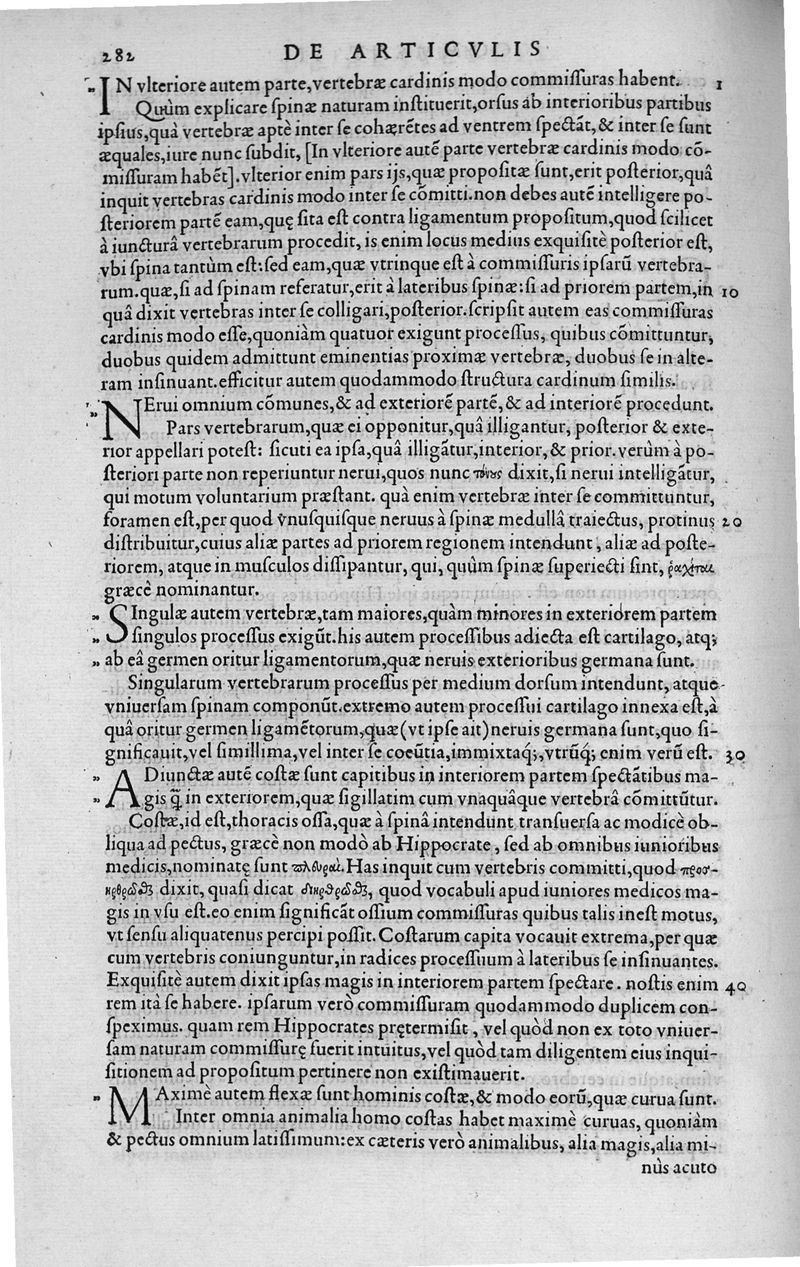 282 DE ARTICVLIS
„ IN vlteriore autem parte,vertebræ cardinis modo commiſſuras habent. 1
Quùm explicare ſpinæ naturam inſtituerit,orſus ab interioribus partibus
ipſius,quà vertebræ aptè inter ſe cohærẽtes ad ventrem ſpectãt,& inter ſe ſunt
æquales,iure nunc ſubdit, [In vlteriore autẽ parte vertebræ cardinis modo cõ-
miſſuram habẽt].vlterior enim pars ijs,quæ propoſitæ ſunt,erit poſterior,quâ
inquit vertebras cardinis modo inter ſe cõmitti.non debes autẽ intelligere po-
ſteriorem partẽ eam,quę ſita eſt contra ligamentum propoſitum,quod ſcilicet
à iuncturâ vertebrarum procedit, is enim locus medius exquiſitè poſterior eſt,
vbi ſpina tantùm eſt:ſed eam,quæ vtrinque eſt à commiſſuris ipſarũ vertebra-
rum.quæ,ſi ad ſpinam referatur,erit à lateribus ſpinæ:ſi ad priorem partem,in 10
quâ dixit vertebras inter ſe colligari,poſterior.ſcripſit autem eas commiſſuras
cardinis modo eſſe,quoniàm quatuor exigunt proceſſus, quibus cõmittuntur,
duobus quidem admittunt eminentias proximæ vertebræ, duobus ſe in alte-
ram inſinuant.efficitur autem quodammodo ſtructura cardinum ſimilis.
„ NErui omnium cõmunes,& ad exteriorẽ partẽ,& ad interiorẽ procedunt.
Pars vertebrarum,quæ ei opponitur,quâ illigantur, poſterior & exte-
rior appellari poteſt: ſicuti ea ipſa,quâ illigãtur,interior, & prior.verùm à po-
ſteriori parte non reperiuntur nerui,quos nunc τόνους dixit,ſi nerui intelligãtur,
qui motum voluntarium præſtant. quà enim vertebræ inter ſe committuntur,
foramen eſt,per quod vnuſquiſque neruus à ſpinæ medullâ traiectus, protinus 20
diſtribuitur,cuius aliæ partes ad priorem regionem intendunt, aliæ ad poſte-
riorem, atque in muſculos diſſipantur, qui, quùm ſpinæ ſuperiecti ſint, ῥαχῖται
græcè nominantur.
„ SIngulæ autem vertebræ,tam maiores,quàm minores in exteriorem partem
„ ſingulos proceſſus exigũt.his autem proceſſibus adiecta eſt cartilago, atq;
„ ab eâ germen oritur ligamentorum,quæ neruis exterioribus germana ſunt.
Singularum vertebrarum proceſſus per medium dorſum intendunt, atque
vniuerſam ſpinam componũt.extremo autem proceſſui cartilago innexa eſt,à
quâ oritur germen ligamẽtorum,quæ(vt ipſe ait)neruis germana ſunt,quo ſi-
gnificauit,vel ſimillima,vel inter ſe coeũtia,immixtaq́;,vtrũq́; enim verũ eſt. 30
„ ADiunctæ autẽ coſtæ ſunt capitibus in interiorem partem ſpectãtibus ma-
„ gis q̃ in exteriorem,quæ ſigillatim cum vnaquâque vertebrâ cõmittũtur.
Coſtæ,id eſt,thoracis oſſa,quæ à ſpinâ intendunt tranſuerſa ac modicè ob-
liqua ad pectus, græcè non modò ab Hippocrate, ſed ab omnibus iunioribus
medicis,nominatę ſunt πλευραί.Has inquit cum vertebris committi,quod προσ-
ηρθρῶσθαι dixit, quaſi dicat διηρθρῶσθαι, quod vocabuli apud iuniores medicos ma-
gis in vſu eſt.eo enim ſignificãt oſſium commiſſuras quibus talis ineſt motus,
vt ſenſu aliquatenus percipi poſſit.Coſtarum capita vocauit extrema,per quæ
cum vertebris coniunguntur,in radices proceſſuum à lateribus ſe inſinuantes.
Exquiſitè autem dixit ipſas magis in interiorem partem ſpectare. noſtis enim 40
rem ità ſe habere. ipſarum verò commiſſuram quodammodo duplicem con-
ſpeximus. quam rem Hippocrates prętermiſit, vel quòd non ex toto vniuer-
ſam naturam commiſſurę fuerit intuitus,vel quòd tam diligentem eius inqui-
ſitionem ad propoſitum pertinere non exiſtimauerit.
„ MAximè autem flexæ ſunt hominis coſtæ,& modo eorũ,quæ curua ſunt.
Inter omnia animalia homo coſtas habet maximè curuas, quoniàm
& pectus omnium latiſſimum:ex cæteris verò animalibus, alia magis,alia mi-
nùs acuto